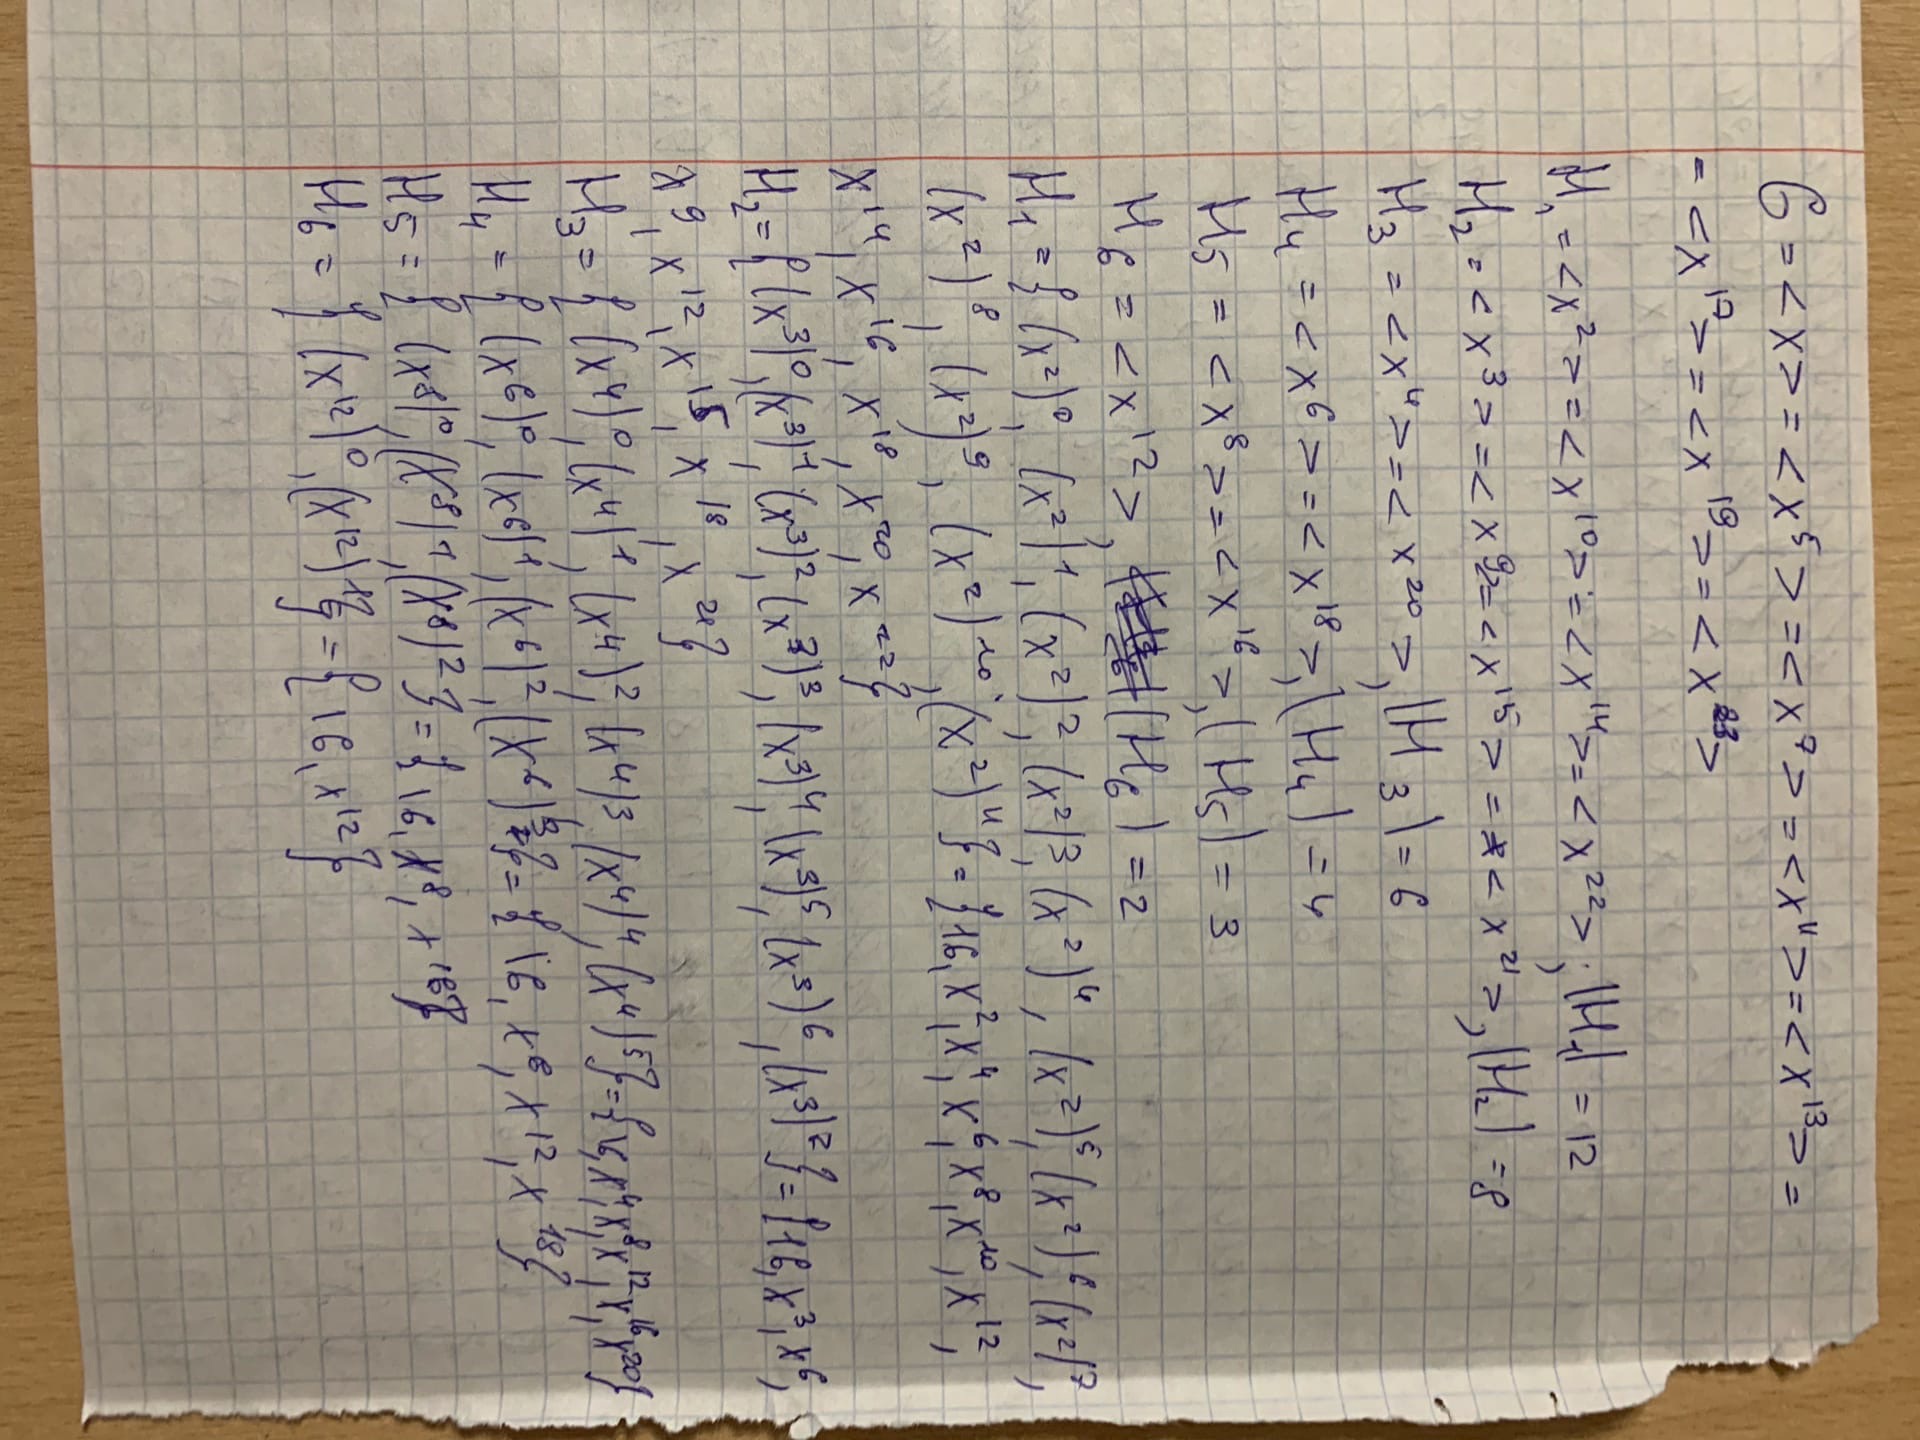 G = <x> = <x⁵> = <x⁷> = <x¹¹> = <x¹³> =
= <x¹⁷> = <x¹⁹> = <x²³>
H₁ = <x²> = <x¹⁰> = <x¹⁴> = <x²²>, |H₁| = 12
H₂ = <x³> = <x⁹> = <x¹⁵> = <x²¹>, |H₂| = 8
H₃ = <x⁴> = <x²⁰>, |H₃| = 6
H₄ = <x⁶> = <x¹⁸>, |H₄| = 4
H₅ = <x⁸> = <x¹⁶>, |H₅| = 3
H₆ = <x¹²>, |H₆| = 2
H₁ = {(x²)⁰, (x²)¹, (x²)², (x²)³, (x²)⁴, (x²)⁵, (x²)⁶, (x²)⁷,
(x²)⁸, (x²)⁹, (x²)¹⁰, (x²)¹¹} = {1G, x², x⁴, x⁶, x⁸, x¹⁰, x¹²,
x¹⁴, x¹⁶, x¹⁸, x²⁰, x²²}
H₂ = {(x³)⁰, (x³)¹, (x³)², (x³)³, (x³)⁴, (x³)⁵, (x³)⁶, (x³)⁷} = {1G, x³, x⁶,
x⁹, x¹², x¹⁵, x¹⁸, x²¹}
H₃ = {(x⁴)⁰, (x⁴)¹, (x⁴)², (x⁴)³, (x⁴)⁴, (x⁴)⁵} = {1G, x⁴, x⁸, x¹², x¹⁶, x²⁰}
H₄ = {(x⁶)⁰, (x⁶)¹, (x⁶)², (x⁶)³} = {1G, x⁶, x¹², x¹⁸}
H₅ = {(x⁸)⁰, (x⁸)¹, (x⁸)²} = {1G, x⁸, x¹⁶}
H₆ = {(x¹²)⁰, (x¹²)¹} = {1G, x¹²}